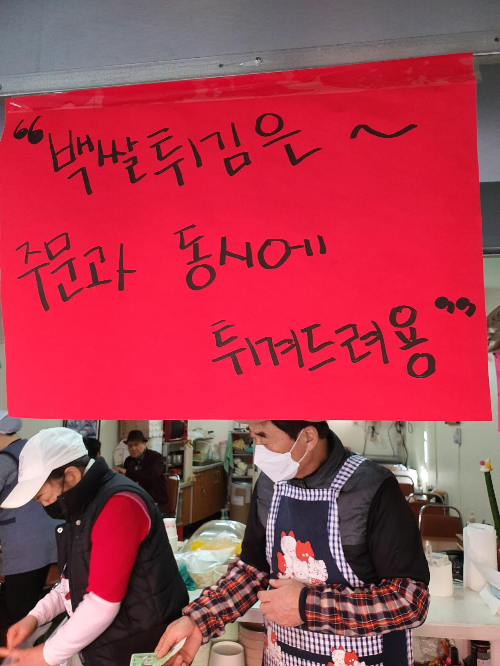 "백쌀튀김은 ~
주문과 동시에
튀겨드려용"